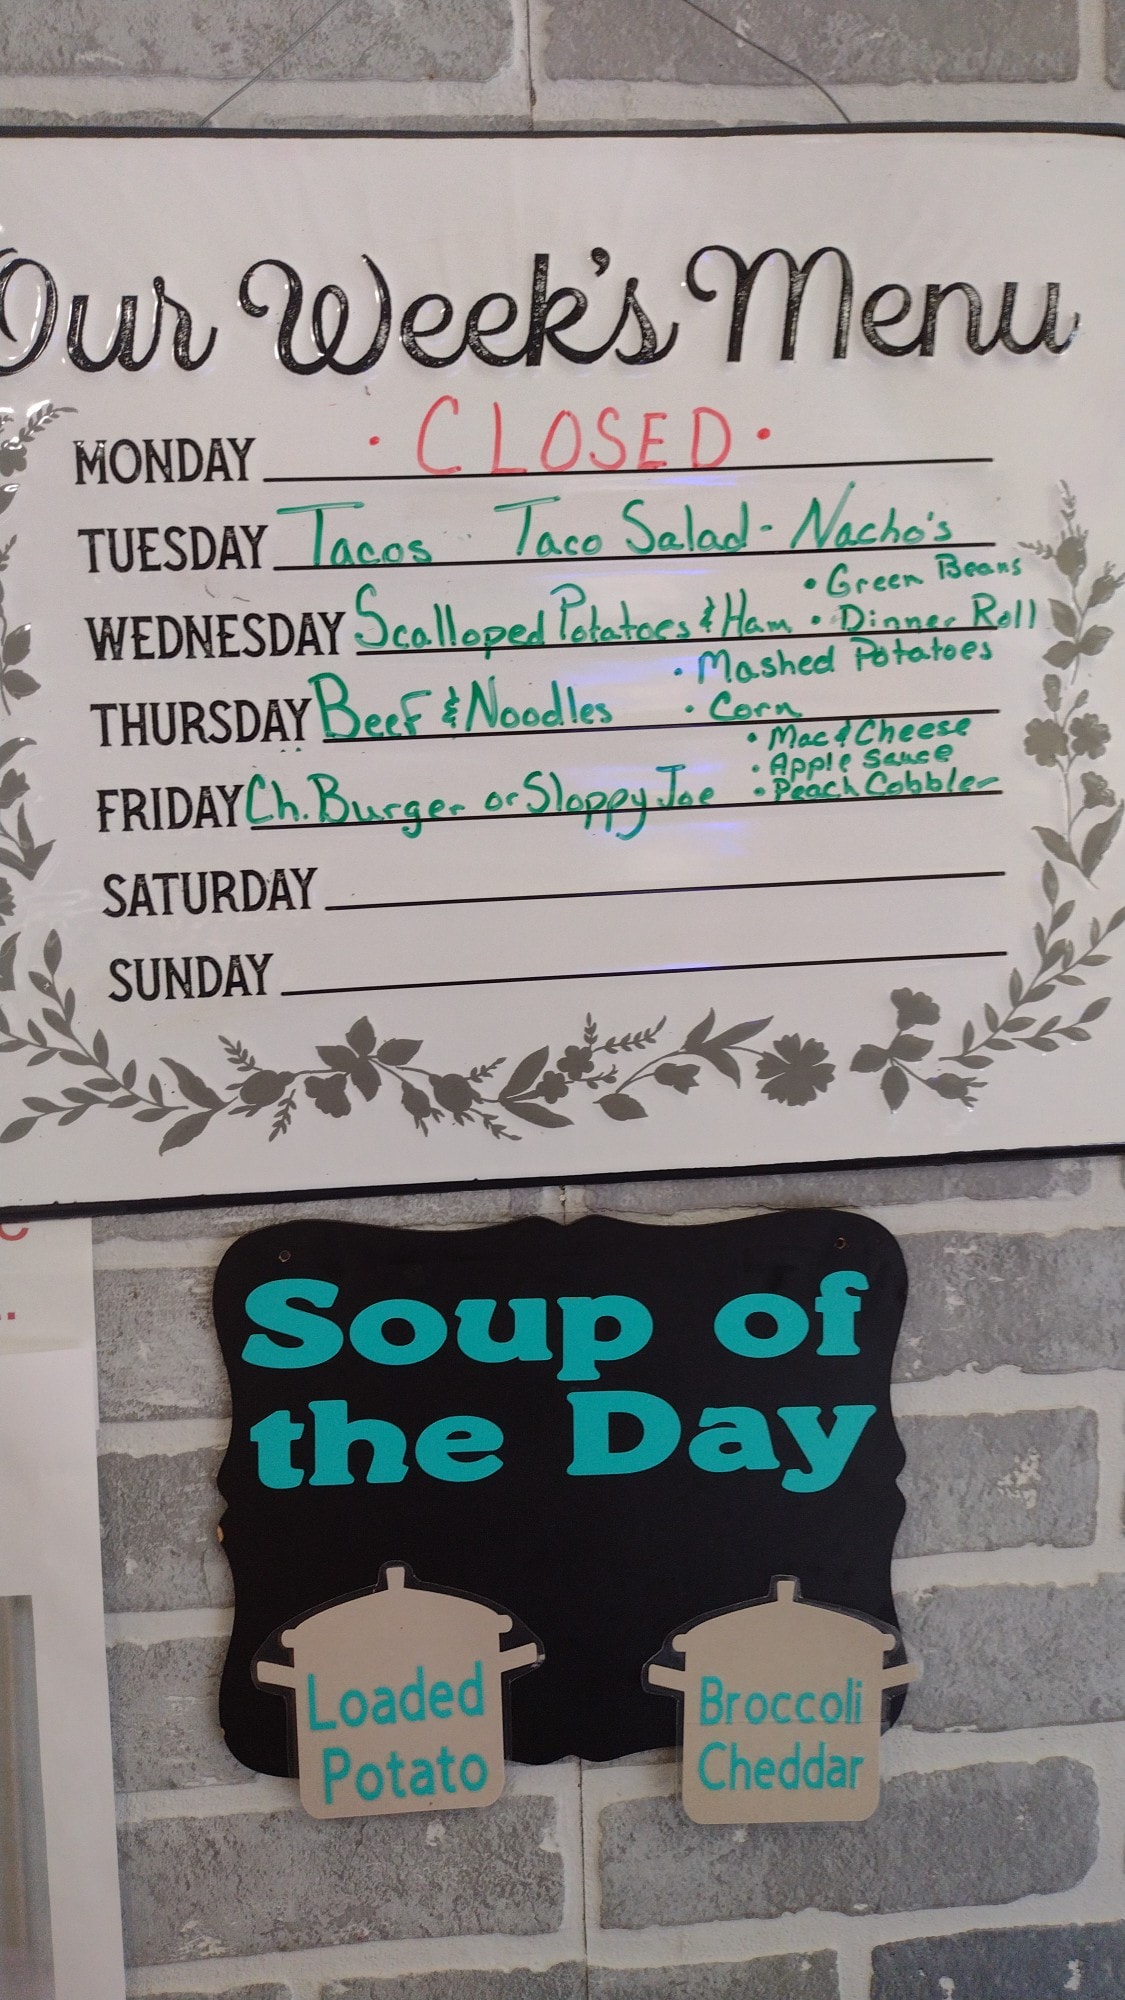 Our Week's Menu
MONDAY · CLOSED ·
TUESDAY Tacos · Taco Salad - Nacho's
• Green Beans
WEDNESDAY Scalloped Potatoes & Ham • Dinner Roll
• Mashed Potatoes
THURSDAY Beef & Noodles • Corn
• Mac & Cheese
• Apple Sauce
FRIDAY Ch. Burger or Sloppy Joe • Peach Cobbler
SATURDAY
SUNDAY
Soup of
the Day
Loaded
Potato
Broccoli
Cheddar